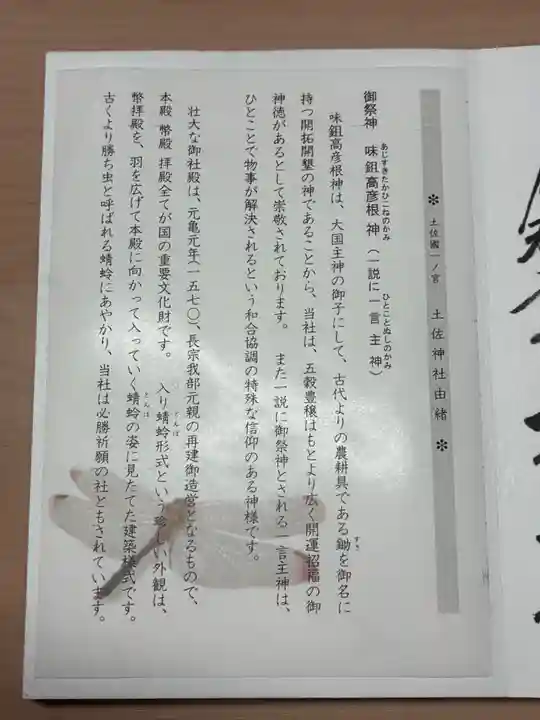 ✽ 土佐國一ノ宮 土佐神社由緒 ✽
御祭神 味鉏高彦根神(一説に一言主神)
あじすきたかひこねのかみ
ひとことぬしのかみ
味鉏高彦根神は、大国主神の御子にして、古代よりの農耕具である鋤を御名に
すき
持つ開拓開墾の神であることから、当社は、五穀豊穣はもとより広く開運招福の御
神徳があるとして崇敬されております。 また一説に御祭神とされる一言主神は、
ひとことで物事が解決されるという和合協調の特殊な信仰のある神様です。
壮大な御社殿は、元亀元年(一五七〇)、長宗我部元親の再建御造営となるもので、
本殿 幣殿 拝殿全てが国の重要文化財です。 入り蜻蛉形式という珍しい外観は、
とんぼ
幣拝殿を、羽を広げて本殿に向かって入っていく蜻蛉の姿に見たてた建築様式です。
とんぼ
古くより勝ち虫と呼ばれる蜻蛉にあやかり、当社は必勝祈願の社ともされています。